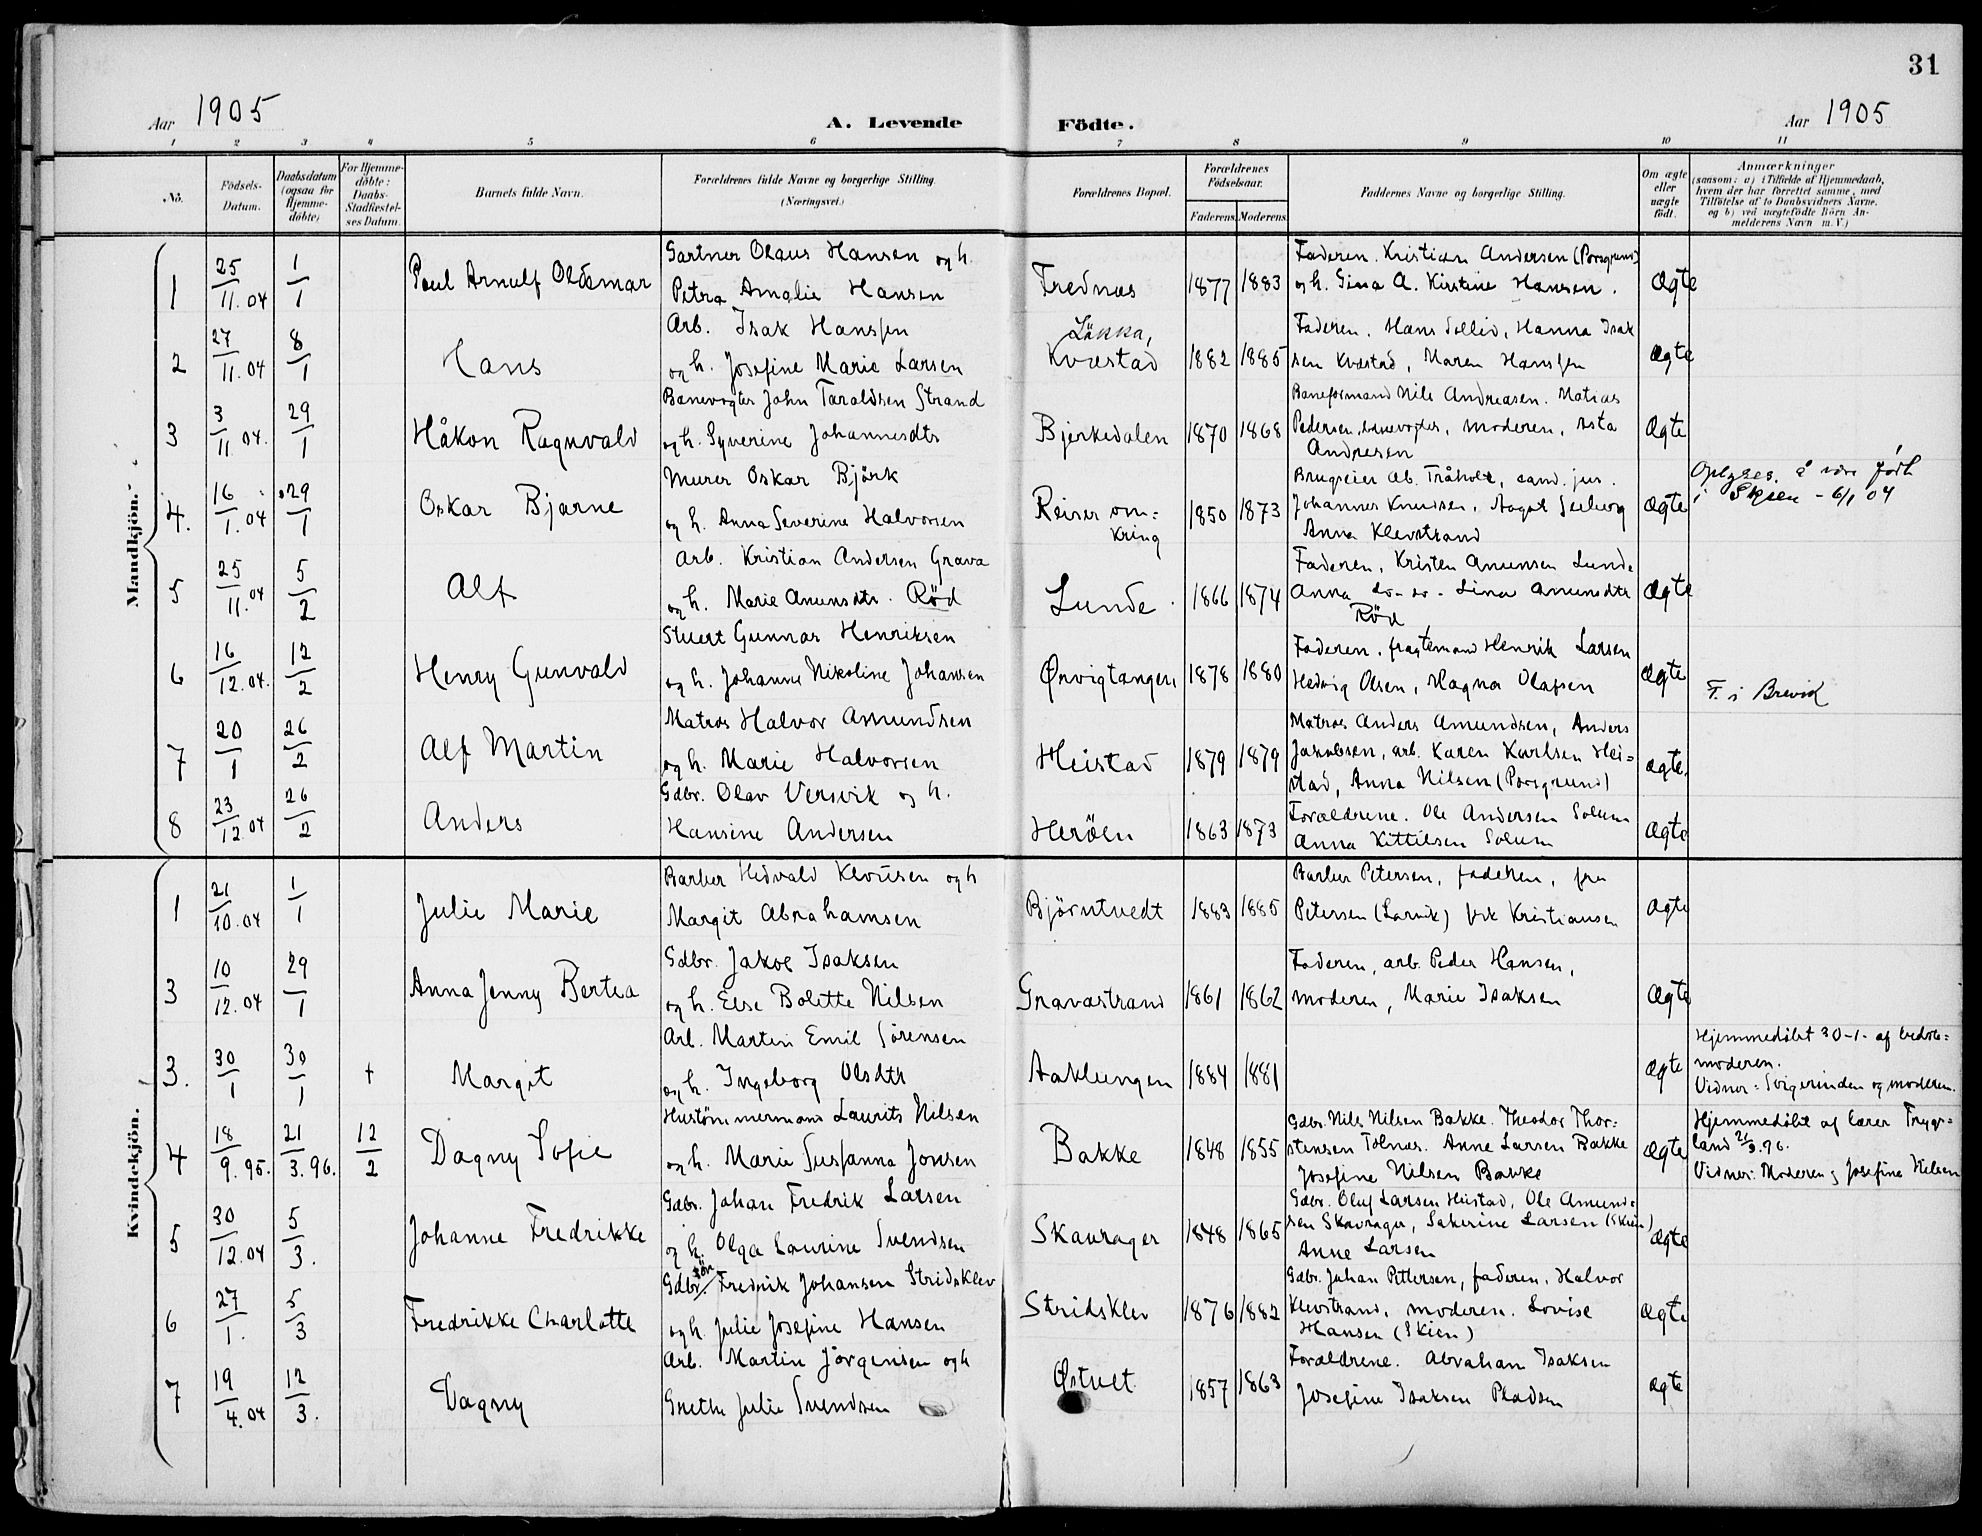 31
Aar 1905
A. Levende Födte.
Aar 1905
1 2 3 4 5 6 7 8 9 10 11
No.
Födsels-
Datum.
Daabsdatum
(ogsaa for
Hjemme-
döbte)
For Hjemme-
döbte:
Daabs-
Stadfæstel-
ses Datum.
Barnets fulde Navn.
Forældrenes fulde Navne og borgerlige Stilling.
(Næringsvei.)
Forældrenes Bopæl.
Forældrenes
Födselsaar.
Faderens. Moderens.
Faddernes Navne og borgerlige Stilling.
Om ægte
eller
uægte
født.
Anmærkninger
(saasom: a) i Tilfælde af Hjemmedaab,
hvem der har forrettet samme, med
Tilföielse af to Daabsvidners Navne.
og b) ved uægtefödte Börn An-
melderens Navn m. V.)
Mandkjön.
1
25/11.04
1/1
Paul Arnulf Oldemar
Gartner Olaus Hansen og h.
Petra Amalie Hansen
Frednæs
1877 1883
Faderen. Kristian Andersen (Porsgrund)
og h. Gina A. Kirstine Hansen.
Ægte
2
27/11.04
8/1
Hans
Arb. Isak Hanssen
og h. Josefine Marie Larsen
Løkka,
Kvæstad
1882 1885
Faderen, Hans Sollid, Hanna Isak
sen Kvæstad, Maren Hanssen
Ægte
3
3/11 04.
29/1
Håkon Ragnvald
Banevogter John Taraldsen Strand
og h. Syverine Johannesdtr
Bjerkedalen
1870 1868
Baneformand Nils Andreasen. Matias
Pedersen, banevogter, moderen, Asta
Andresen
Ægte
4.
16/1.04
29/1
Oskar Bjarne
Murer Oskar Bjørk
og h. Anna Severine Halvorsen
Reiser om=
kring
1850 1873
Brugseier Ab. Tråholt, cand. jur.
Johannes Knudsen, Aagot Seeberg
Anna Klevstrand
Ægte
Oplyses å være født
i Skien - 6/1 04
5
25/11.04
5/2
Alf
Arb. Kristian Andersen Grava
og h. Marie Amunsdtr. Rød
Lunde.
1866 1874
Faderen, Kristen Amunsen Lunde
Anna do - do - Lina Amunsdtr
Rød
Ægte
6
16/12.04.
12/2
Henry Gunvald
Stuert Gunnar Henriksen
og h. Johanne Nikoline Johansen
Ørvigtangen
1878 1880
Faderen, fragtemand Henrik Larsen
Hedvig Olsen, Magna Olafsen
Ægte
F. i Brevik
7
20/1
26/2
Alf Martin
Matros Halvor Amundsen
og h. Marie Halvorsen
Heistad
1879 1879
Matros Anders Amundsen, Anders
Jakobsen, arb. Karen Karlsen Hei=
stad, Anna Nilsen (Porsgrund)
Ægte.
8
23/12.04
26/2
Anders
Gdbr. Olav Versvik og h.
Hansine Andersen
Herøen
1863 1873
Forældrene. Ole Andersen Solum
Anna Kittilsen Solum
Ægte
Kvindekjön.
1
21/10.04
1/1
Julie Marie
Barber Hedvald Klousen og h
Margit Abrahamsen
Bjørntvedt
1883 1885
Barber Petersen, faderen, fru
Petersen (Larvik) frk Kristiansen
Ægte
3
10/12.04
29/1
Anna Jenny Bertea
Gdbr. Jakob Isaksen
og h. Else Bolette Nilsen
Gravastrand
1861 1862
Faderen, arb. Peder Hansen,
moderen, Marie Isaksen
Ægte
3.
30/1
30/1
+
Margit
Arb. Martin Emil Sørensen
og h. Ingeborg Olsdtr
Aaklungen
1884 1881
Ægte
Hjemmedøbt 30-1- af bedste=
moderen.
Vidner: Svigerinden og moderen.
4
18/9.95.
21/3.96.
12/2
Dagny Sofie
Hustømmermand Laurits Nilsen
og h. Marie Susanna Jonsen
Bakke
1848 1855
Gdbr. Nils Nilsen Bakke. Theodor Thor-
stensen Tolnæs. Anne Larsen Bakke
Josefine Nilsen Bakke
Ægte
Hjemmedøbt af lærer Tryg=
land 21/3.96.
Vidner: Moderen og Josefine Nilsen
5
30/12.04
5/3.
Johanne Fredrikke
Gdbr. Johan Fredrik Larsen
og h. Olga Laurine Svendsen
Skavrager
1848 1865
Gdbr. Oluf Larsen Heistad, Ole Amund=
sen Skavrager, Sakerine Larsen (Skien)
Anne Larsen
Ægte
6
27/1.
5/3
Fredrikke Charlotte
Gdbr. søn Fredrik Johansen Stridsklev
og h. Julie Josefine Hansen
Stridsklev
1876 1882
Gdbr. Johan Pettersen, faderen, Halvor
Klevstrand, moderen. Lovise
Hansen (Skien)
Ægte
7
19/4.04
12/3.
Dagny
Arb. Martin Jørgensen og h
Grethe Julie Svendsen
Østvet
1857 1863
Forældrene. Abraham Isaksen
Josefine Isaksen Pladsen
Ægte